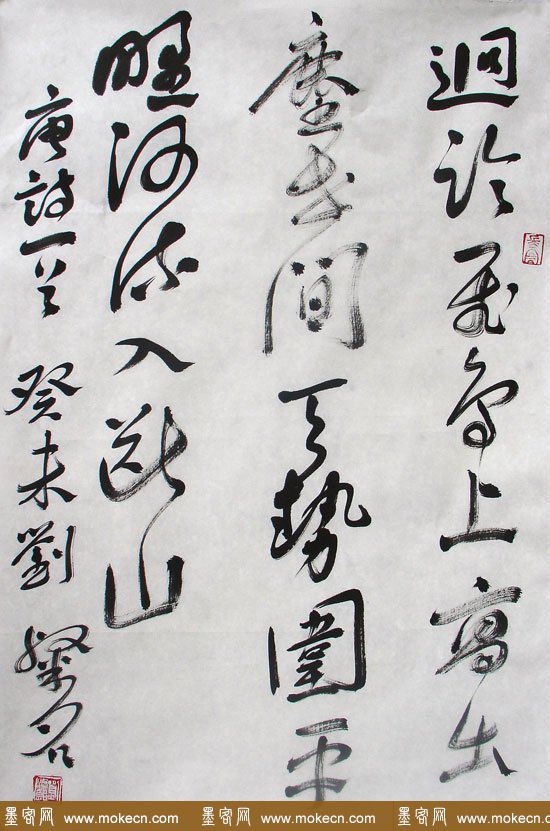 迥臨飛鳥上高出
塵世間天勢圍平
野河流入斷山
唐詩一首 癸未劉粲名
墨客网 www.mokecn.com 墨客网 www.mokecn.com 墨客网 www.mokecn.com